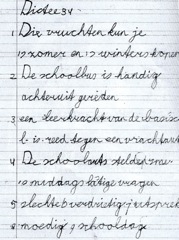 Dictee 34
1 Die vruchten kun je
's zomer en 's winters kopen
2 De schoolbus is handig
achteruit gereden
3 een leerkracht van de basis
reed tegen een vrachtaut
4 De schoolarts stelde
's middags vragen
5 slechte verdrietig
6 moedig schooldag